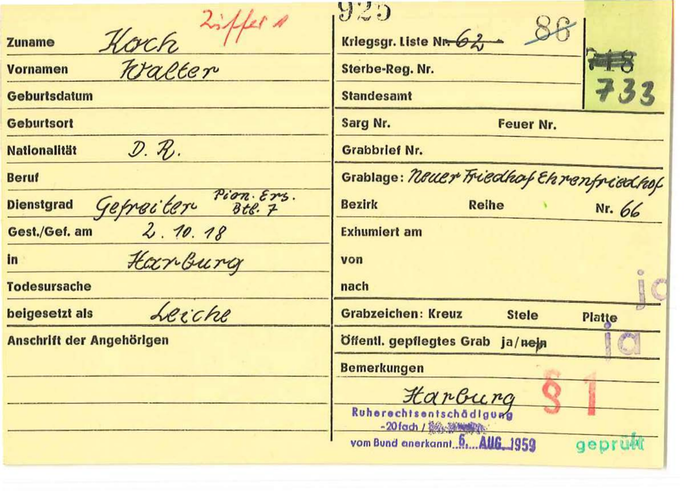 Ziffer 1
925
Zuname Koch
Kriegsgr. Liste Nr. 62
86
Vornamen Walter
Sterbe-Reg. Nr.
718
Geburtsdatum
Standesamt
733
Geburtsort
Sarg Nr. Feuer Nr.
Nationalität D. R.
Grabbrief Nr.
Beruf
Grablage: Neuer Friedhof Ehrenfriedhof
Dienstgrad Gefreiter Pion. Ers. Btl. 7
Bezirk Reihe Nr. 66
Gest./Gef. am 2. 10. 18
Exhumiert am
in Harburg
von
Todesursache
nach
ja
beigesetzt als Leiche
Grabzeichen: Kreuz Stele Platte
Anschrift der Angehörigen
Öffentl. gepflegtes Grab ja/nein
ja
Bemerkungen
Harburg
§ 1
Ruherechtsentschädigung
-20fach /
vom Bund anerkannt 6. AUG. 1959
geprüft